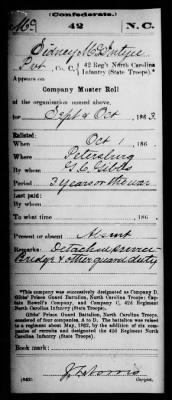 (Confederate.)
Mc 42 N.C.
Sidney McIntyre
Pvt, Co. C, 42 Reg't North Carolina
Infantry (State Troops).*
Appears on
Company Muster Roll
of the organization named above,
for Sept & Oct, 1863.
Enlisted:
When Oct 1, 186
Where Petersburg
By G. C. Gibbs
Period 3 years or the war
Last paid:
By whom
To what time , 186
Present or absent Absent
Remarks: Detached
Bridge & other guard duty
*This company was successively designated as Company D,
Gibbs' Prison Guard Battalion, North Carolina Troops; Captain
Howell's Company, and Company C, 42d Regiment North
Carolina Infantry (State Troops).
Gibbs' Prison Guard Battalion, North Carolina Troops,
consisted of four companies, A to D. The battalion was raised to
a regiment about May, 1862, by the addition of six companies
of recruits and designated the 42d Regiment North
Carolina Infantry (State Troops).
Book mark:
(642)
Copyist.